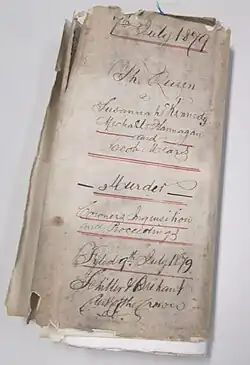 7th July 1879
The Queen
v
Susannah Kennedy
Michael Flannagan
and
Cook. Heard
Murder
Coroners Inquisition
and Proceedings
Filed 9th July 1879
Clerk of the Crown